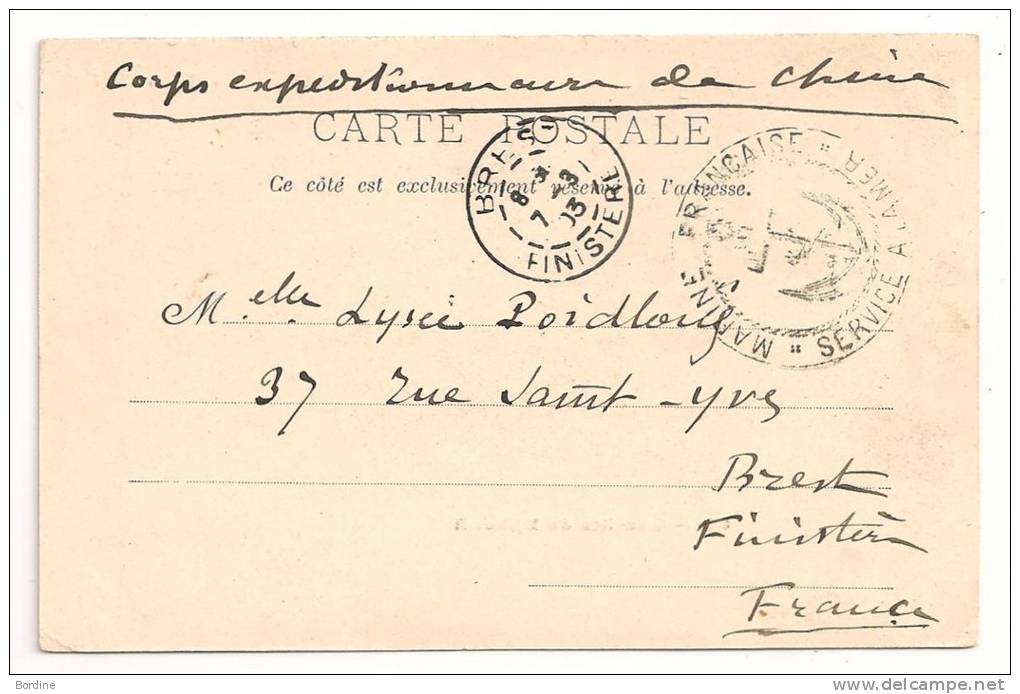 Corps expeditionnaire de Chine
CARTE POSTALE
Ce côté est exclusivement réservé à l'adresse.
BREST
8
7 -3
03
FINISTERE
MARINE FRANÇAISE
SERVICE A LA MER
Melle Lysie Poidloüe
37 Rue Saint-Yves
Brest
Finistère
France
Bordine
www.delcampe.net